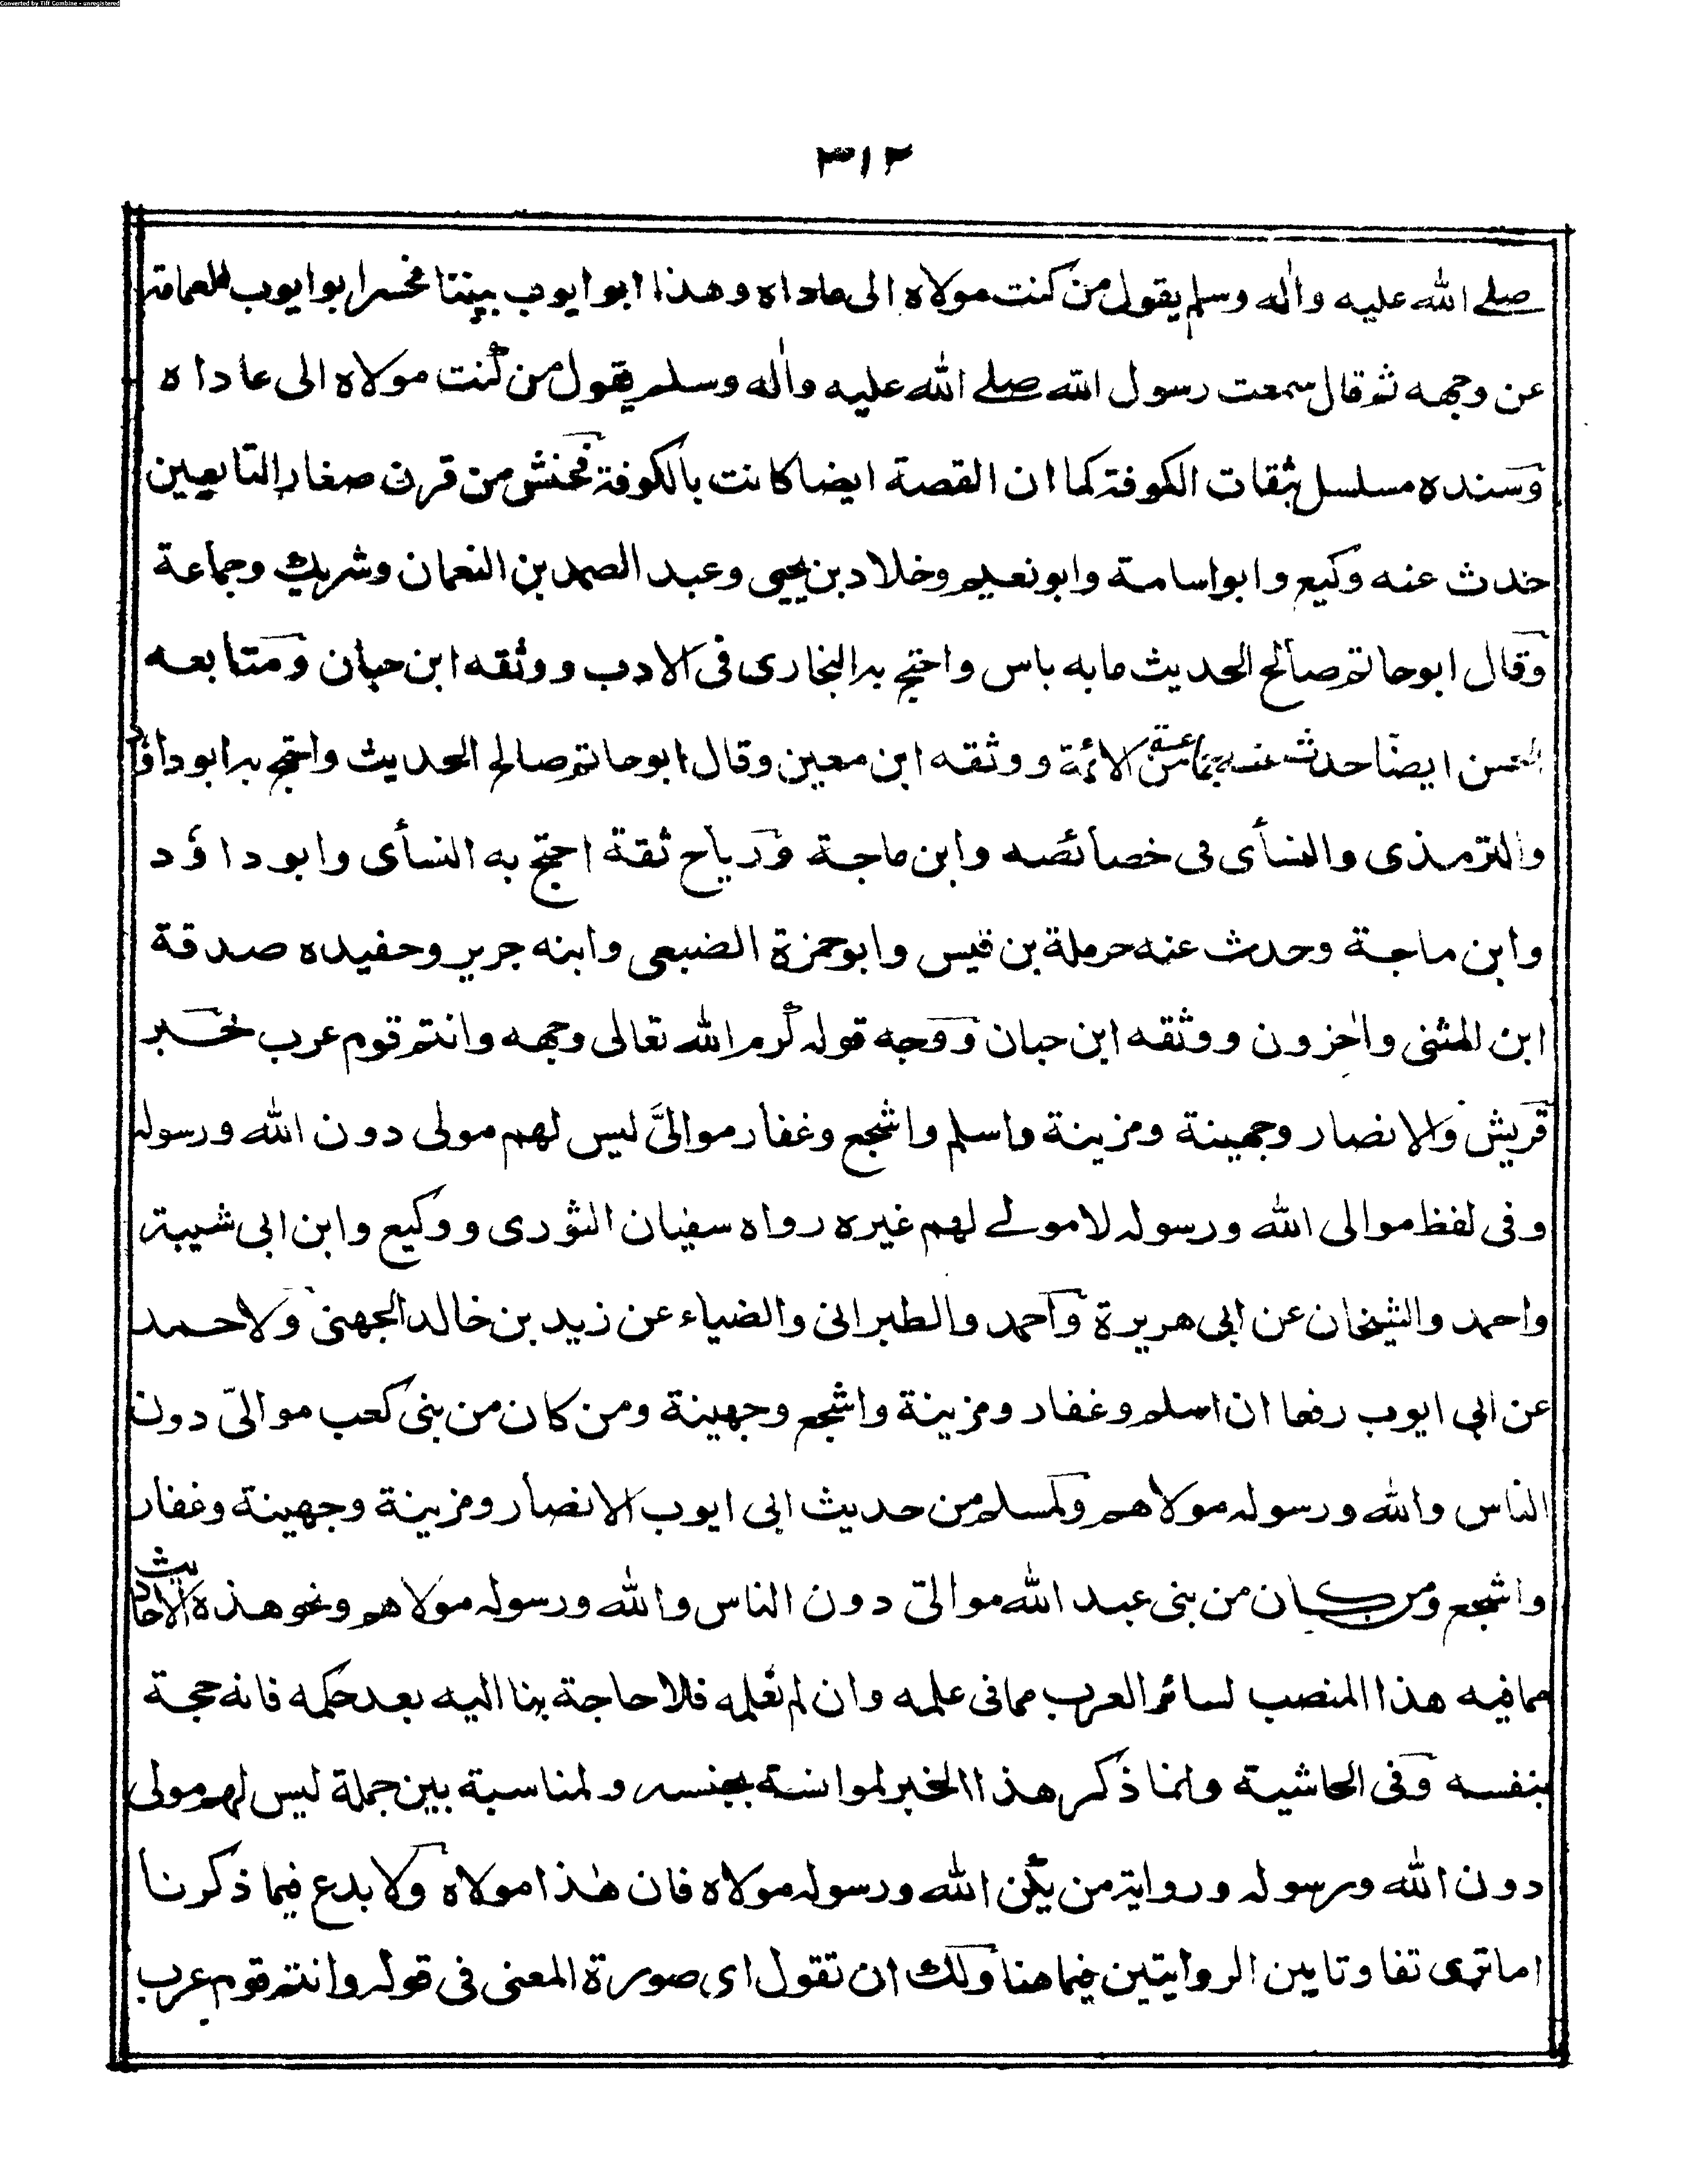 Converted by Tiff Combine - unregistered
٣١٢
صلے الله عليه واٰله وسلم يقول من كنت مولاه الى عاداه وهذا ابو ايوب بيننا فحسر ابو ايوب العمامة
عن وجهه ثم قال سمعت رسول الله صلے الله عليه واٰله وسلم يقول من كنت مولاه الى عاداه
وسنده مسلسل بثقات الكوفة كما ان القصة ايضا كانت بالكوفة فحنش من قرن صغار التابعين
حدث عنه وكيع وابو اسامة وابو نعيم وخلاد بن يحيى وعبد الصمد بن النعمان وشريك وجماعة
وقال ابو حاتم صالح الحديث ما به باس واحتج به البخارى فى الادب ووثقه ابن حبان ومتابعه
الحسن ايضا حدث عنه جماعة من الائمة ووثقه ابن معين وقال ابو حاتم صالح الحديث واحتج به ابو داؤد
والترمذى والنسأى فى خصائصه وابن ماجة ورياح ثقة احتج به النسأى وابو داؤد
وابن ماجة وحدث عنه حرملة بن قيس وابو حمزة الضبعى وابنه جرير وحفيده صدقة
ابن المثنى واٰخرون ووثقه ابن حبان ووجه قوله كرم الله تعالى وجهه وانتم قوم عرب خبر
قريش والانصار وجهينة ومزينة واسلم واشجع وغفار موالىَّ ليس لهم مولى دون الله ورسوله
وفى لفظ موالى الله ورسوله لا مولے لهم غيره رواه سفيان الثورى ووكيع وابن ابى شيبة
واحمد والشيخان عن ابى هريرة واحمد والطبرانى والضياء عن زيد بن خالد الجهنى ولاحمد
عن ابى ايوب رفعا ان اسلم وغفار ومزينة واشجع وجهينة ومن كان من بنى كعب موالىّ دون
الناس والله ورسوله مولاهم ولمسلم من حديث ابى ايوب الانصار ومزينة وجهينة وغفار
واشجع ومن كان من بنى عبد الله موالىّ دون الناس والله ورسوله مولاهم ونحو هذه الاحاديث
مما فيه هذا المنصب لسائر العرب مما فى علمه وان لم نعلمه فلا حاجة بنا اليه بعد حكمه فانه حجة
بنفسه وفى الحاشية وانما ذكر هذا الخبر لموانسة بجنسه ولمناسبة بين جملة ليس لهم مولى
دون الله ورسوله ورواية من يكن الله ورسوله مولاه فان هٰذا مولاه ولا بدع فيما ذكرنا
اما ترى تفاوتا بين الروايتين فيما هنا ولك ان تقول اى صورة المعنى فى قوله وانتم قوم عرب